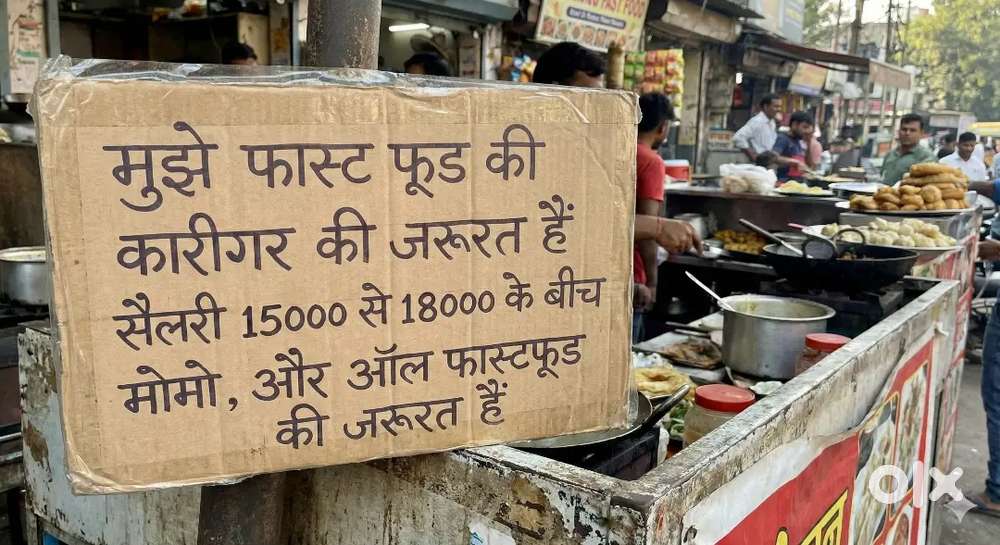 मुझे फास्ट फूड की
कारीगर की जरूरत हैं
सैलरी 15000 से 18000 के बीच
मोमो, और ऑल फास्टफूड
की जरूरत हैं
FAST FOOD
olx